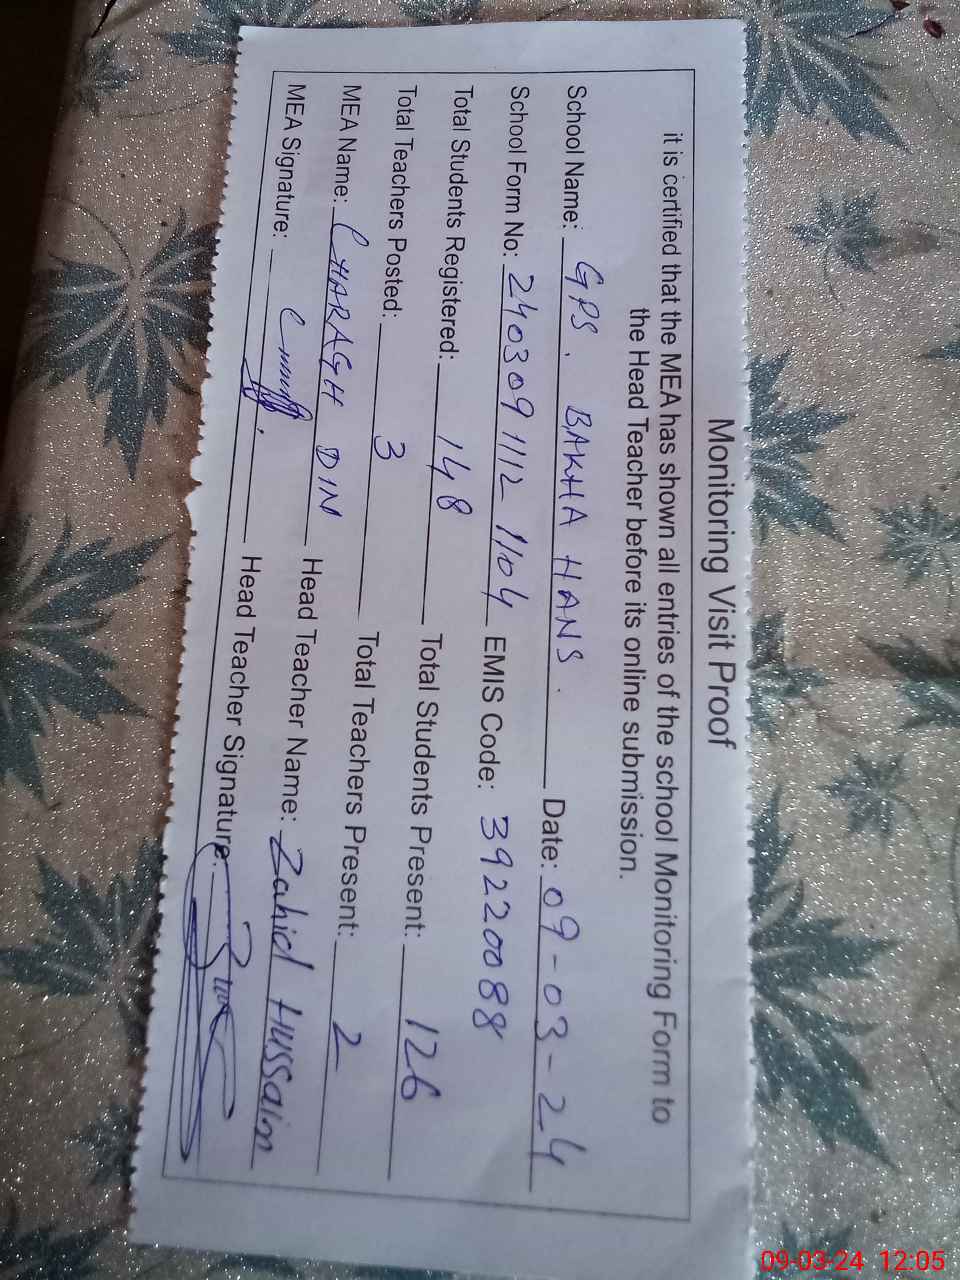 Monitoring Visit Proof
it is certified that the MEA has shown all entries of the school Monitoring Form to
the Head Teacher before its online submission.
School Name: GPS. BAKHA HANS. Date: 09-03-24
School Form No: 240309 1112 1104 EMIS Code: 39220088
Total Students Registered: 148 Total Students Present: 126
Total Teachers Posted: 3 Total Teachers Present: 2
MEA Name: CHARAGH DIN Head Teacher Name: Zahid Hussain
MEA Signature: Head Teacher Signature:
09-03-24 12:05